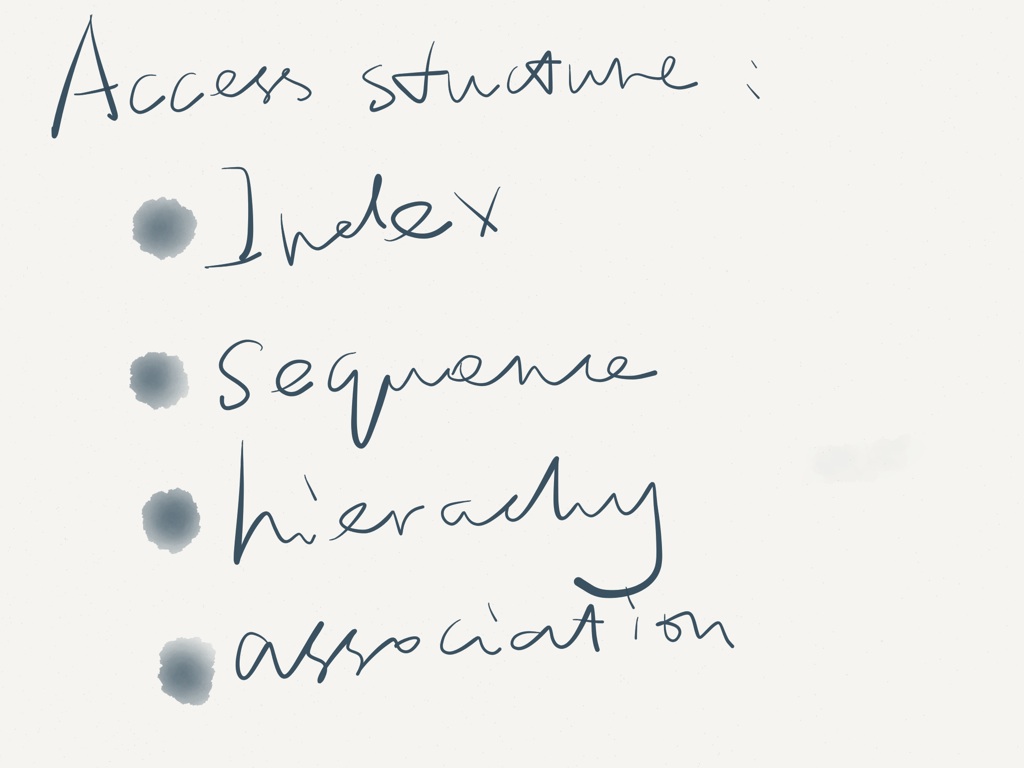 Access structure :
Index
Sequence
hierachy
association